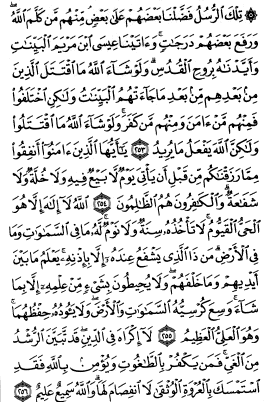 ۞ تِلْكَ ٱلرُّسُلُ فَضَّلْنَا بَعْضَهُمْ عَلَىٰ بَعْضٍ مِّنْهُم مَّن كَلَّمَ ٱللَّهُ
وَرَفَعَ بَعْضَهُمْ دَرَجَٰتٍ وَءَاتَيْنَا عِيسَى ٱبْنَ مَرْيَمَ ٱلْبَيِّنَٰتِ
وَأَيَّدْنَٰهُ بِرُوحِ ٱلْقُدُسِ وَلَوْ شَآءَ ٱللَّهُ مَا ٱقْتَتَلَ ٱلَّذِينَ
مِنۢ بَعْدِهِم مِّنۢ بَعْدِ مَا جَآءَتْهُمُ ٱلْبَيِّنَٰتُ وَلَٰكِنِ ٱخْتَلَفُوا۟
فَمِنْهُم مَّنْ ءَامَنَ وَمِنْهُم مَّن كَفَرَ وَلَوْ شَآءَ ٱللَّهُ مَا ٱقْتَتَلُوا۟
وَلَٰكِنَّ ٱللَّهَ يَفْعَلُ مَا يُرِيدُ ٢٥٣ يَٰٓأَيُّهَا ٱلَّذِينَ ءَامَنُوٓا۟ أَنفِقُوا۟
مِمَّا رَزَقْنَٰكُم مِّن قَبْلِ أَن يَأْتِىَ يَوْمٌ لَّا بَيْعٌ فِيهِ وَلَا خُلَّةٌ وَلَا
شَفَٰعَةٌ وَٱلْكَٰفِرُونَ هُمُ ٱلظَّٰلِمُونَ ٢٥٤ ٱللَّهُ لَآ إِلَٰهَ إِلَّا هُوَ
ٱلْحَىُّ ٱلْقَيُّومُ لَا تَأْخُذُهُۥ سِنَةٌ وَلَا نَوْمٌ لَّهُۥ مَا فِى ٱلسَّمَٰوَٰتِ وَمَا
فِى ٱلْأَرْضِ مَن ذَا ٱلَّذِى يَشْفَعُ عِندَهُۥٓ إِلَّا بِإِذْنِهِۦ يَعْلَمُ مَا بَيْنَ
أَيْدِيهِمْ وَمَا خَلْفَهُمْ وَلَا يُحِيطُونَ بِشَىْءٍ مِّنْ عِلْمِهِۦٓ إِلَّا بِمَا
شَآءَ وَسِعَ كُرْسِيُّهُ ٱلسَّمَٰوَٰتِ وَٱلْأَرْضَ وَلَا يَـُٔودُهُۥ حِفْظُهُمَا
وَهُوَ ٱلْعَلِىُّ ٱلْعَظِيمُ ٢٥٥ لَآ إِكْرَاهَ فِى ٱلدِّينِ قَد تَّبَيَّنَ ٱلرُّشْدُ
مِنَ ٱلْغَىِّ فَمَن يَكْفُرْ بِٱلطَّٰغُوتِ وَيُؤْمِنۢ بِٱللَّهِ فَقَدِ
ٱسْتَمْسَكَ بِٱلْعُرْوَةِ ٱلْوُثْقَىٰ لَا ٱنفِصَامَ لَهَا وَٱللَّهُ سَمِيعٌ عَلِيمٌ ٢٥٦